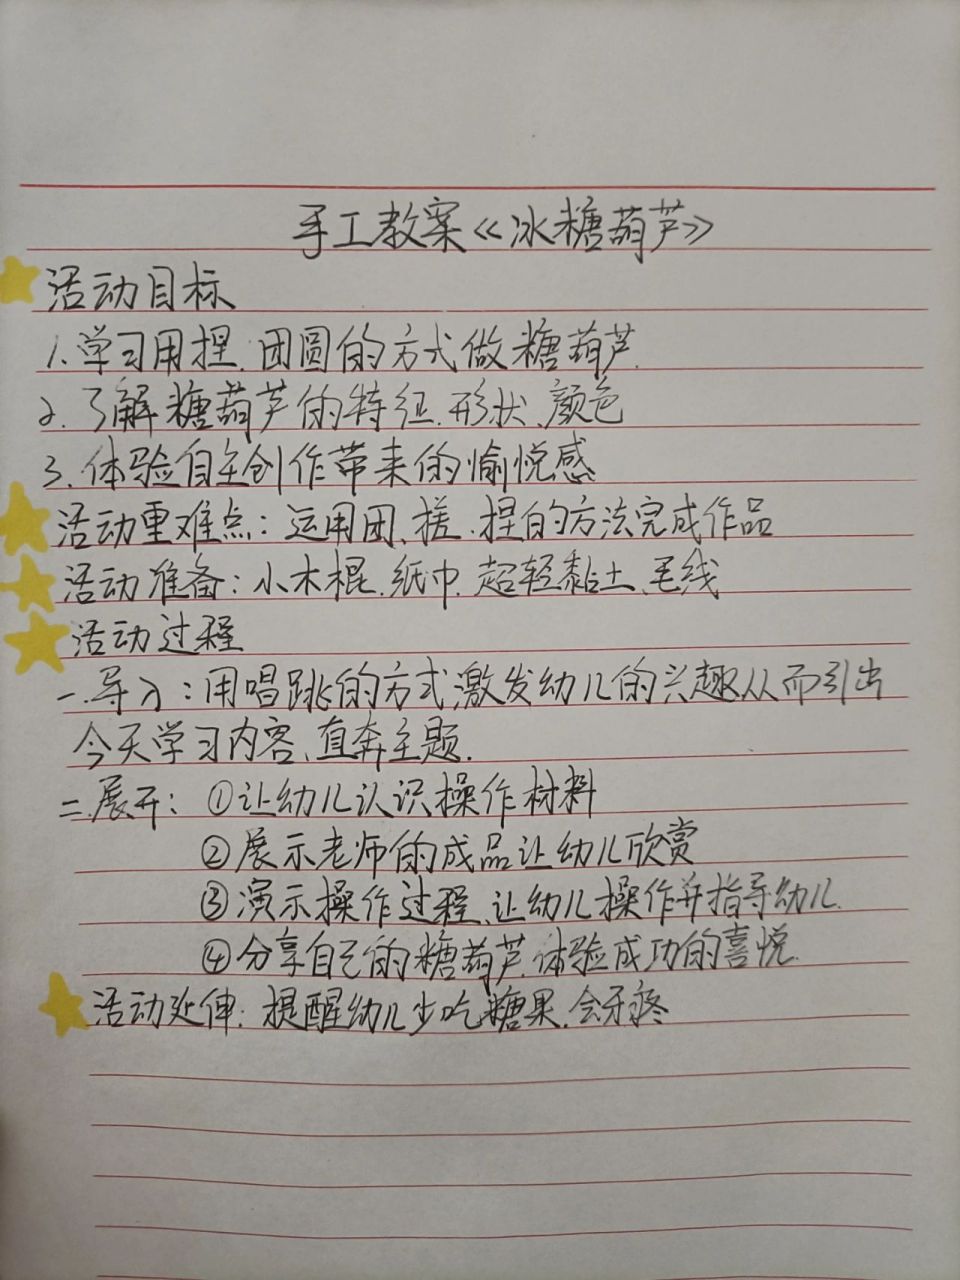 手工教案《冰糖葫芦》
活动目标
1.学习用捏.团圆的方式做糖葫芦.
2.了解糖葫芦的特征.形状、颜色
3.体验自主创作带来的愉悦感
活动重难点：运用团、搓、捏的方法完成作品
活动准备：小木棍.纸巾.超轻黏土、毛线
活动过程
一.导入：用唱跳的方式激发幼儿的兴趣从而引出
今天学习内容、直奔主题.
二.展开：①让幼儿认识操作材料
②展示老师的成品让幼儿欣赏
③演示操作过程、让幼儿操作并指导幼儿.
④分享自己的糖葫芦.体验成功的喜悦.
活动延伸：提醒幼儿少吃糖果.会牙疼